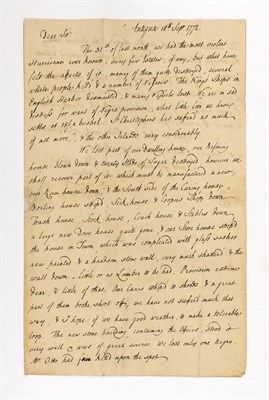 Antigua 18th Sept 1772.
Dear Sir
The 31st of last month, we had the most violent
Hurricane ever known, very few Estates, if any, but what have
felt the effects of it, many of them quite destroyed, several
white people kill'd & a number of Negroes. The Kings Ships in
English Harbor dismasted, & many Vessels lost. We are in sad
distress for want of Negroe provision, what little Corn we have
settles at 16/ a bushel. St Christophers has suffered as much
if not more, & the other Islands very considerably
We lost part of our dwelling house, our Refining
house blown down & twenty Hhds of Sugar destroyed however we
shall recover part of it which must be manufactured a new,
our Rum house down, & the South side of the Curing house,
Boiling house striped Sick house & Coopers Shop down
Trash house, Stock house, Coach house & Stables down
a large new Dove house quite gone, & our Store house striped
the house in Town which was compleated with glass sashes
new painted & a handsom stone wall, very much shatter'd & the
wall down. Little or no Lumber to be had, Provision extreme
dear, & little of that. Our Canes whip'd to shreds & a great
part of them broke short off, we have not suffered much this
way, & I hope, if we have good weather, to make a tolerable
Crop. The new stone building containing the Office, stood it
very well & was of great service. We lost only one Negro.
Mr Otto had four kill'd upon the spot